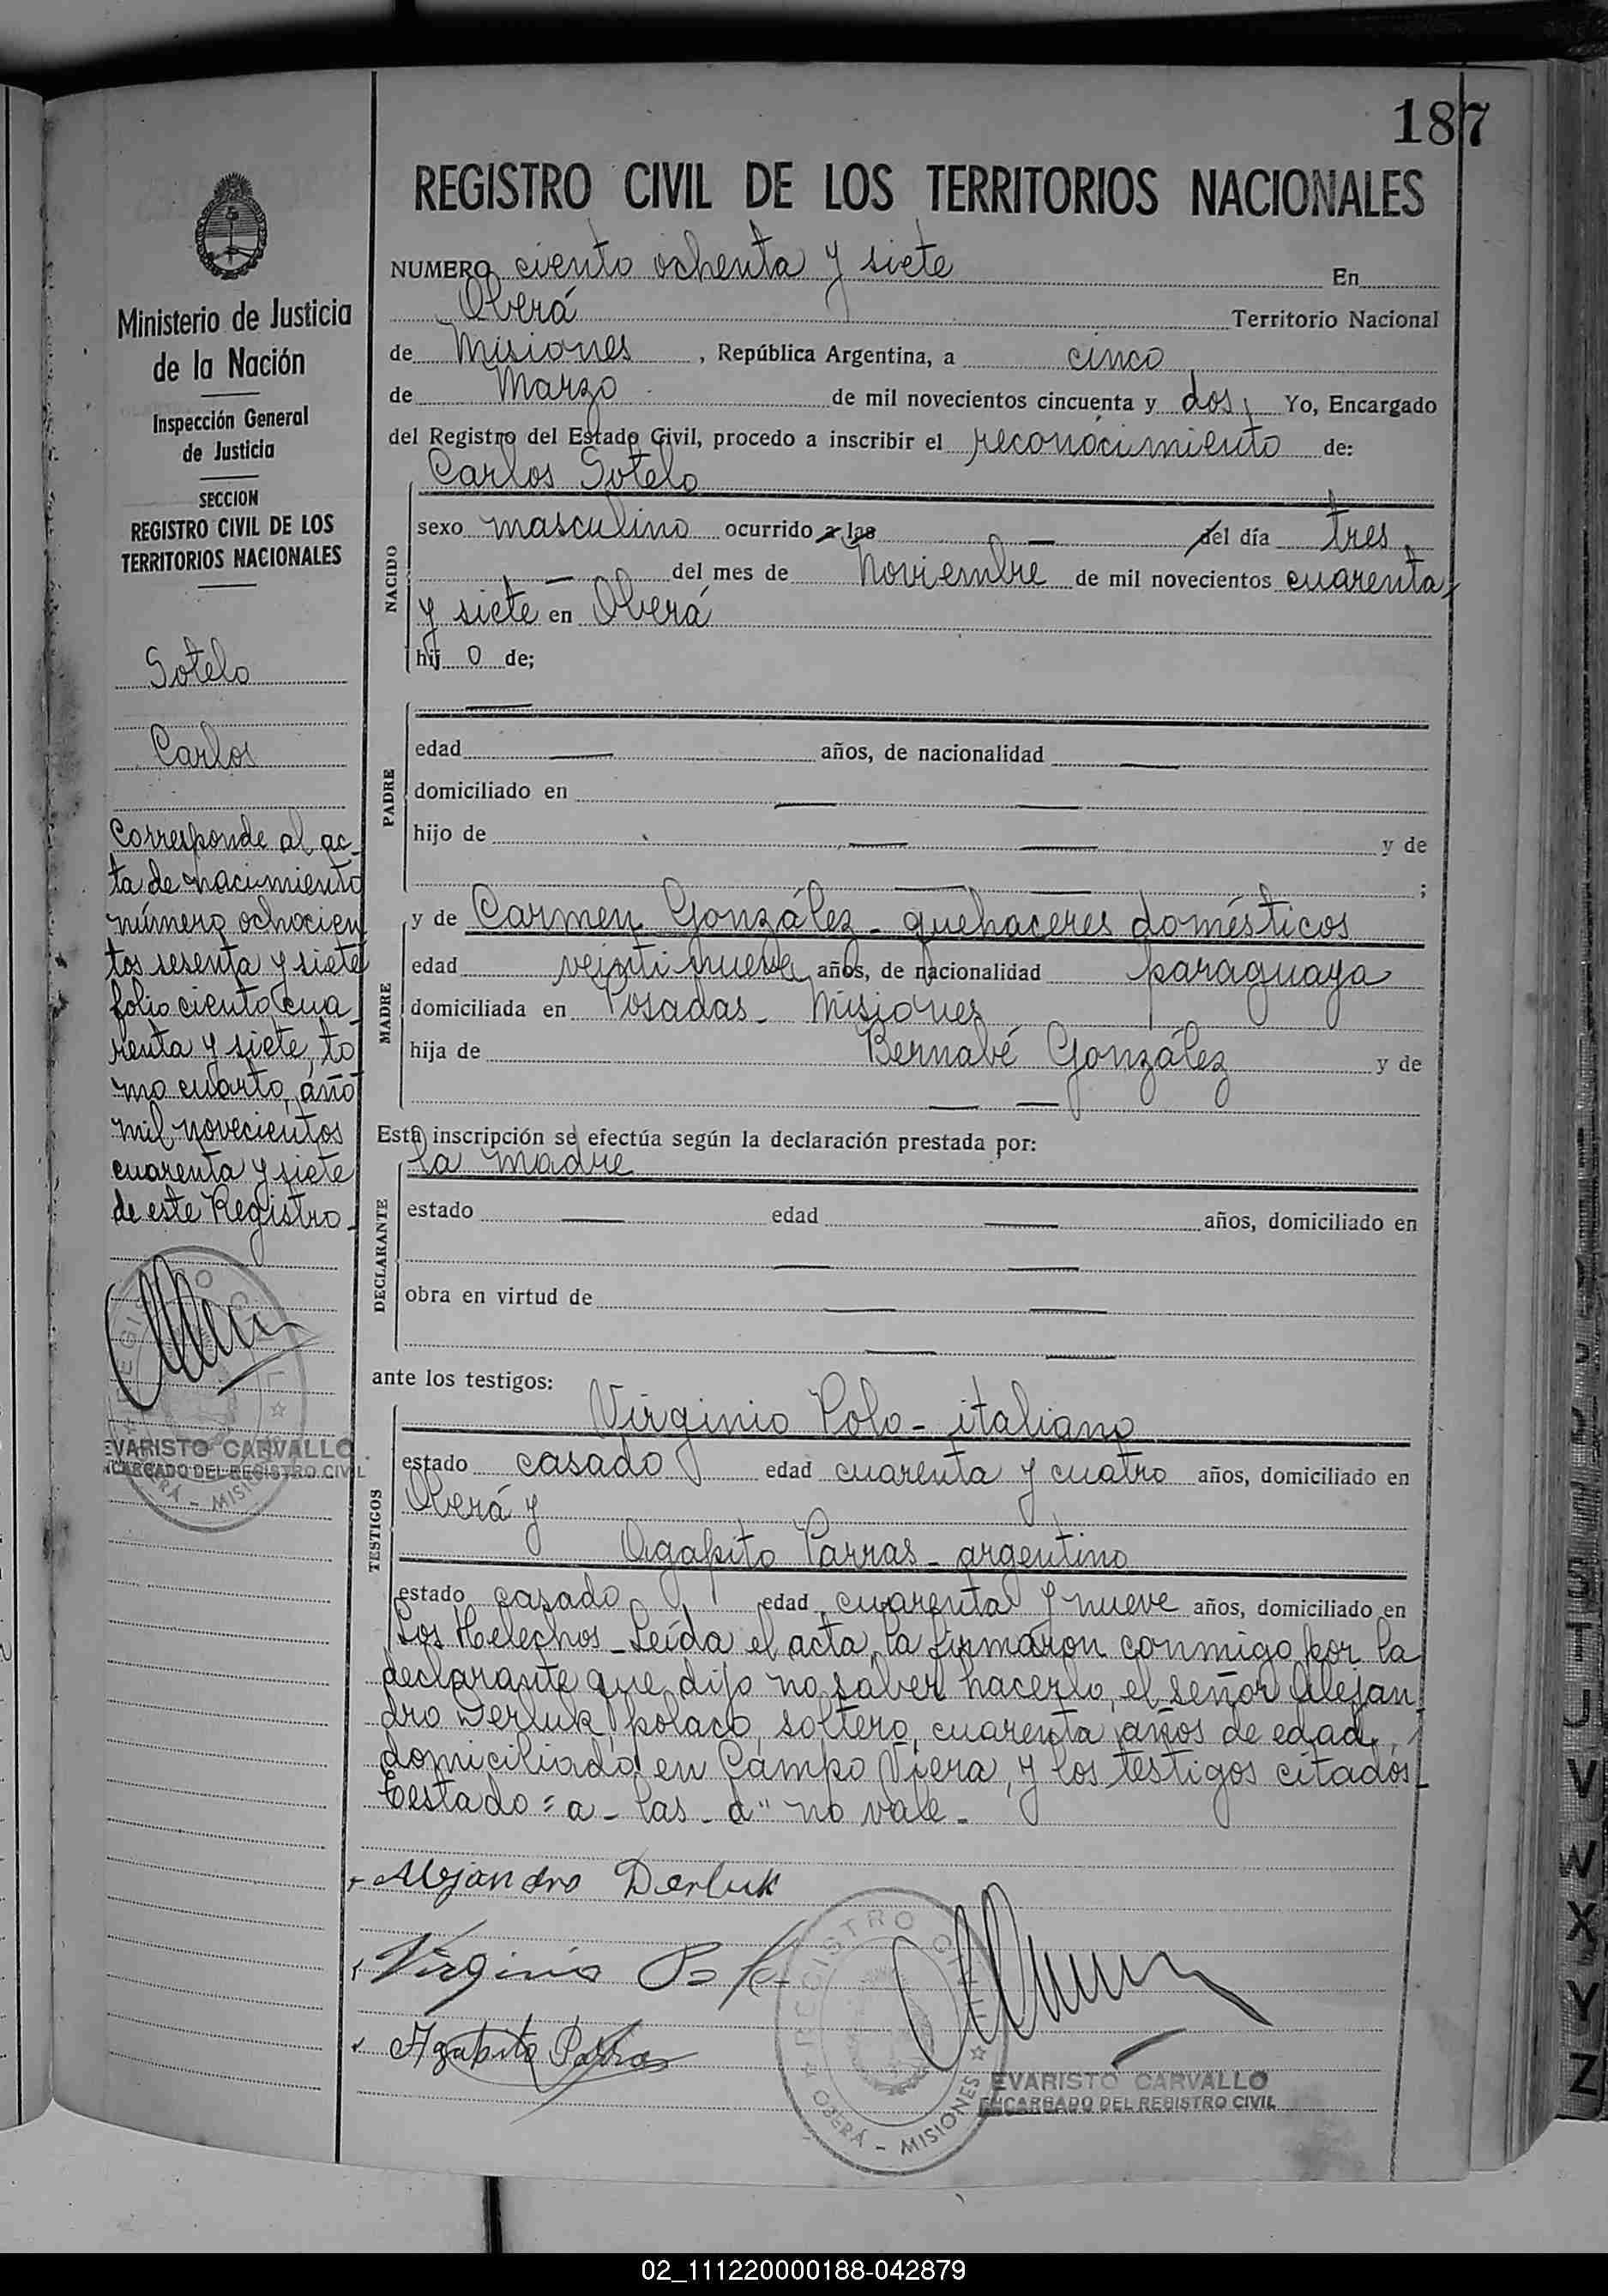 187
REGISTRO CIVIL DE LOS TERRITORIOS NACIONALES
NUMERO ciento ochenta y siete En
Oberá Territorio Nacional
de Misiones, República Argentina, a cinco
de Marzo de mil novecientos cincuenta y dos, Yo, Encargado
del Registro del Estado Civil, procedo a inscribir el reconocimiento de:
Carlos Sotelo
NACIDO
sexo masculino ocurrido a las — del día tres
— del mes de Noviembre de mil novecientos cuarenta
y siete en Oberá
hij o de;
—
PADRE
edad — años, de nacionalidad —
domiciliado en — —
hijo de — — y de
— — ;
MADRE
y de Carmen González - quehaceres domésticos
edad veintinueve años, de nacionalidad paraguaya
domiciliada en Posadas - Misiones
hija de Bernabé González y de
— —
Esta inscripción se efectúa según la declaración prestada por:
la madre
DECLARANTE
estado — edad — años, domiciliado en
— —
obra en virtud de — —
— —
ante los testigos:
TESTIGOS
Virginio Polo - italiano
estado casado edad cuarenta y cuatro años, domiciliado en
Oberá y
Agapito Parras - argentino
estado casado edad cuarenta y nueve años, domiciliado en
Los Helechos - Leída el acta, la firmaron conmigo por la
declarante que dijo no saber hacerlo, el señor Alejan
dro Derluk, polaco, soltero, cuarenta años de edad,
domiciliado en Campo Viera, y los testigos citados -
Testado = a - las - d" no vale -
Alejandro Derluk
Virginio Polo
Agapito Parras
REGISTRO CIVIL
OBERÁ - MISIONES
EVARISTO CARVALLO
ENCARGADO DEL REGISTRO CIVIL
Ministerio de Justicia
de la Nación
Inspección General
de Justicia
SECCION
REGISTRO CIVIL DE LOS
TERRITORIOS NACIONALES
Sotelo
Carlos
Corresponde al ac-
ta de nacimiento
número ochocien
tos sesenta y siete
folio ciento cua-
renta y siete, to
mo cuarto, año
mil novecientos
cuarenta y siete
de este Registro -
EVARISTO CARVALLO
NCARGADO DEL REGISTRO CIVIL
S
T
U
V
W
X
Y
Z
02_111220000188-042879